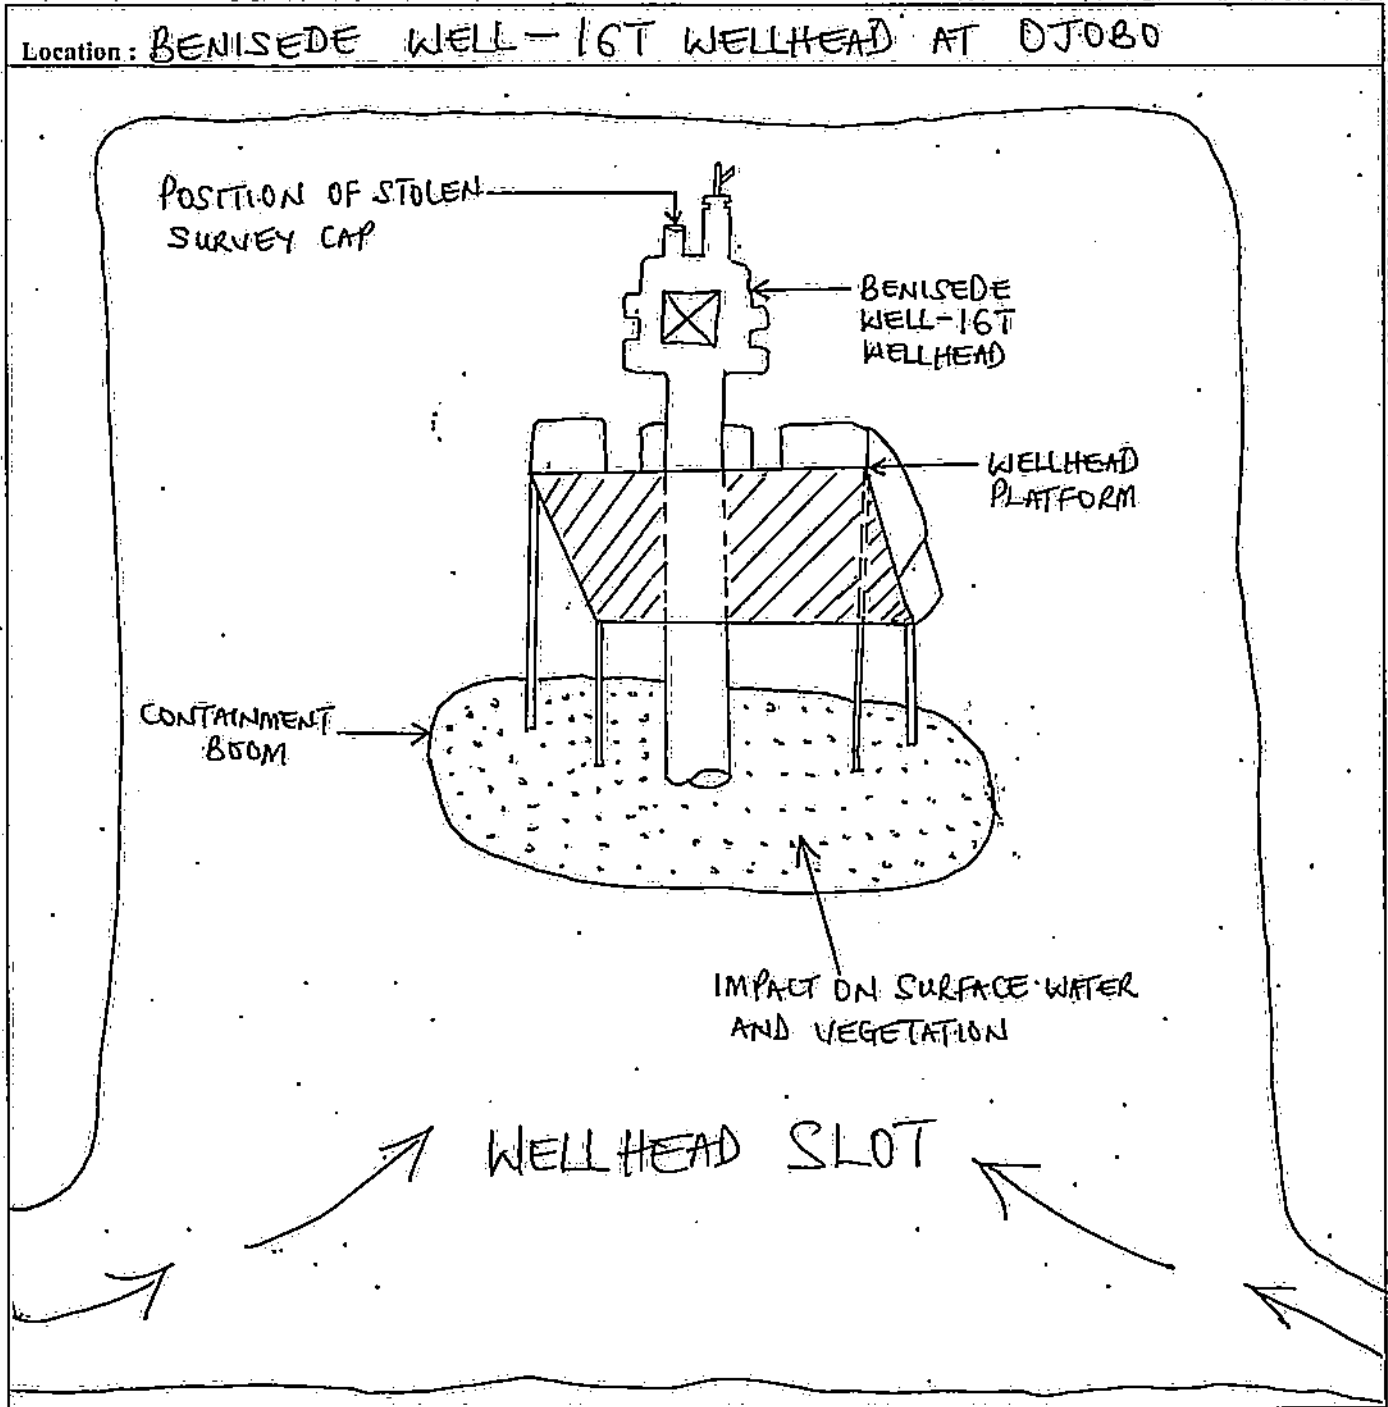 Location : BENISEDE WELL-16T WELLHEAD AT OJOBO
POSITION OF STOLEN
SURVEY CAP
BENISEDE
WELL-16T
WELLHEAD
WELLHEAD
PLATFORM
CONTAINMENT
BOOM
IMPACT ON SURFACE WATER
AND VEGETATION
WELLHEAD SLOT